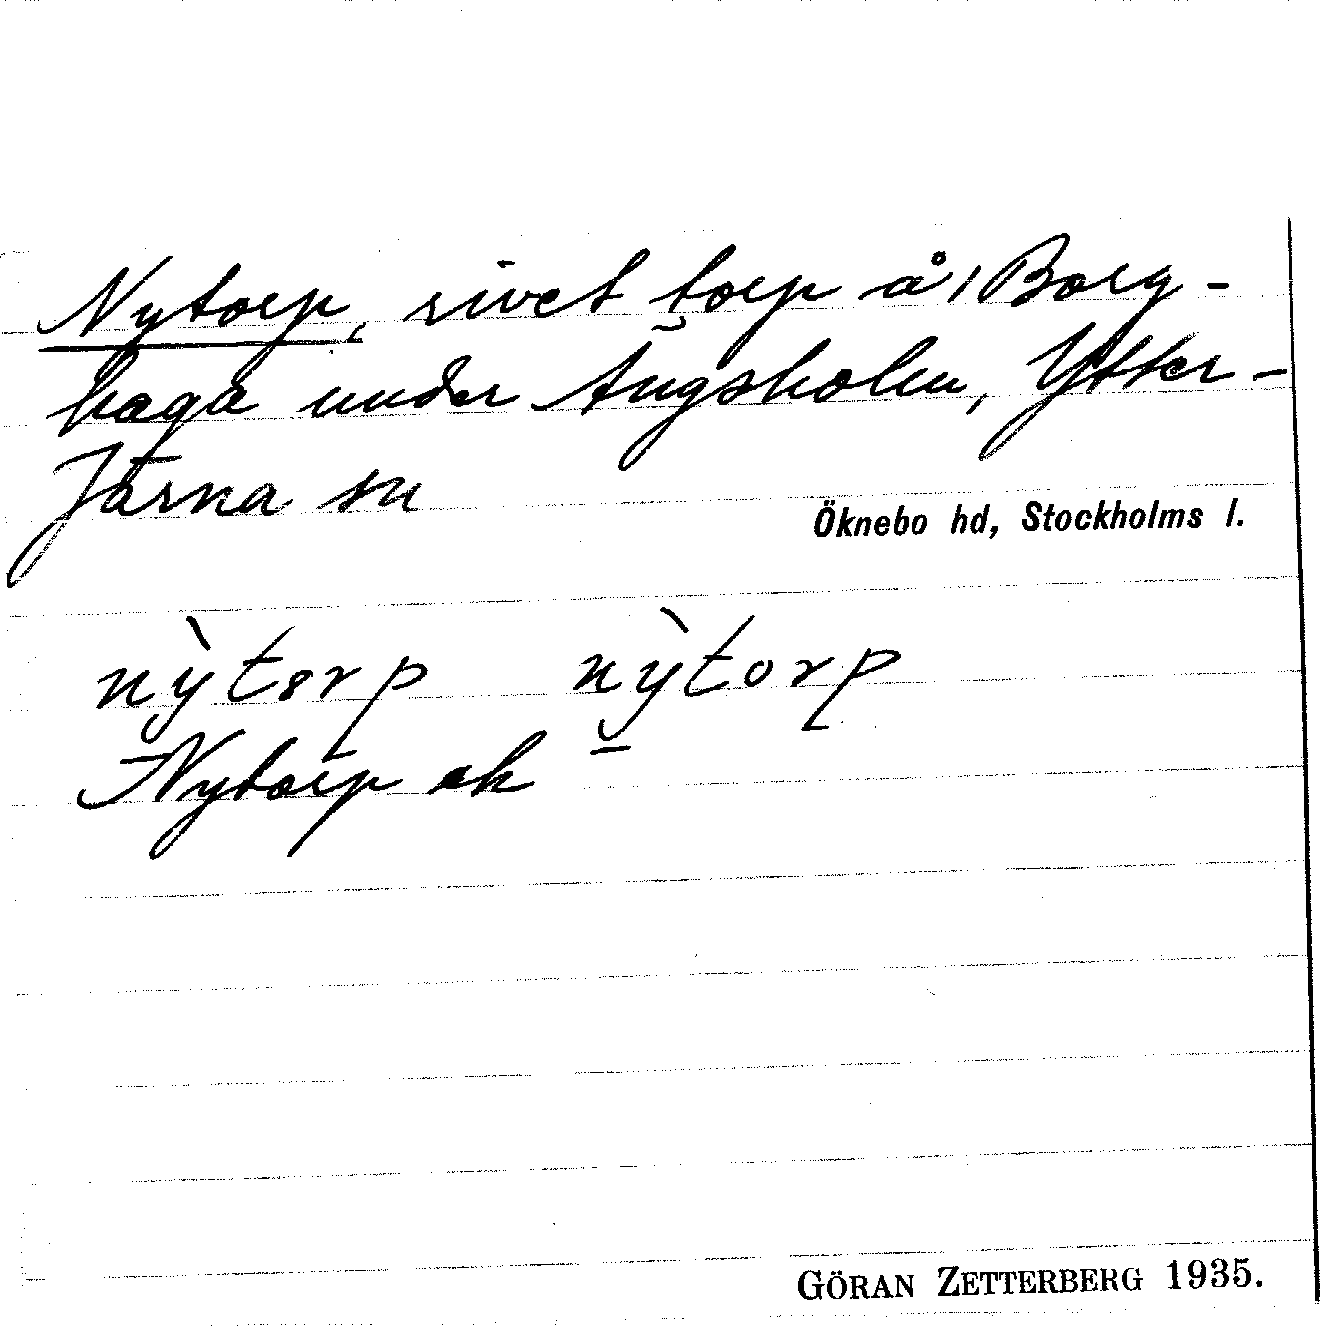 Nytorp, rivet torp å Borg-
haga under Ängsholm, Ytter-
Järna sn
Öknebo hd, Stockholms l.
nỳtorp nỳtorp
Nytorp ek
GÖRAN ZETTERBERG 1935.